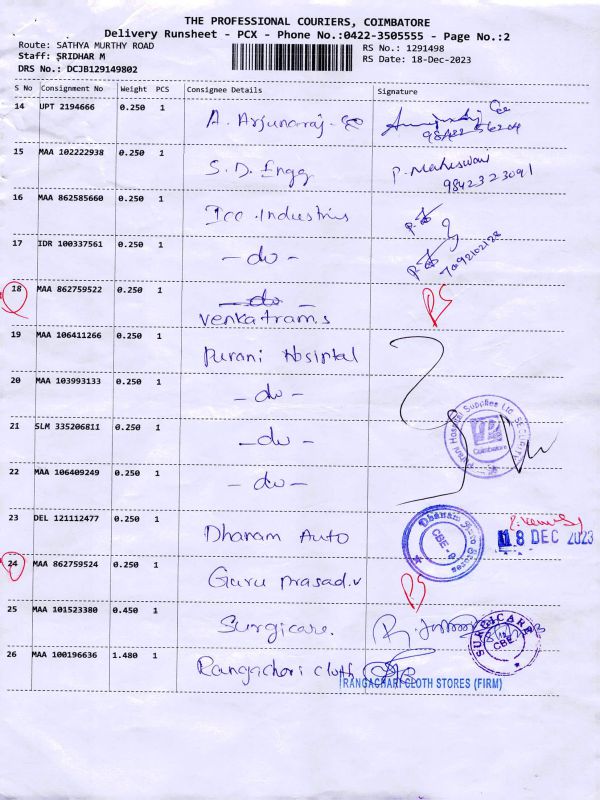 THE PROFESSIONAL COURIERS, COIMBATORE
Delivery Runsheet - PCX - Phone No.:0422-3505555 - Page No.:2
Route: SATHYA MURTHY ROAD
RS No.: 1291498
Staff: SRIDHAR M
RS Date: 18-Dec-2023
DRS No.: DCJB129149802
S No Consignment No Weight PCS Consignee Details Signature
14 UPT 2194666 0.250 1 A. Arjunaraj
15 MAA 102222938 0.250 1 S.D. Engg P. Maheswari
9842323091
16 MAA 862585660 0.250 1 Icc Industries
17 IDR 100337561 0.250 1 - do - 7092102128
18 MAA 862759522 0.250 1 - do - PS
Venkatram.s
19 MAA 106411266 0.250 1 Purani Hosiptal
20 MAA 103993133 0.250 1 - do -
21 SLM 335206811 0.250 1 - do -
Hospital Supplies Ltd
Coimbatore
22 MAA 106409249 0.250 1 - do -
23 DEL 121112477 0.250 1 Dhanam Auto
Dhanam Auto Stores
CBE-9
18 DEC 2023
24 MAA 862759524 0.250 1 Guru prasad.v PS
25 MAA 101523380 0.450 1 Surgicare.
SURGICARE
CBE
26 MAA 100196636 1.480 1 Rangachari cloth
RANGACHARI CLOTH STORES (FIRM)